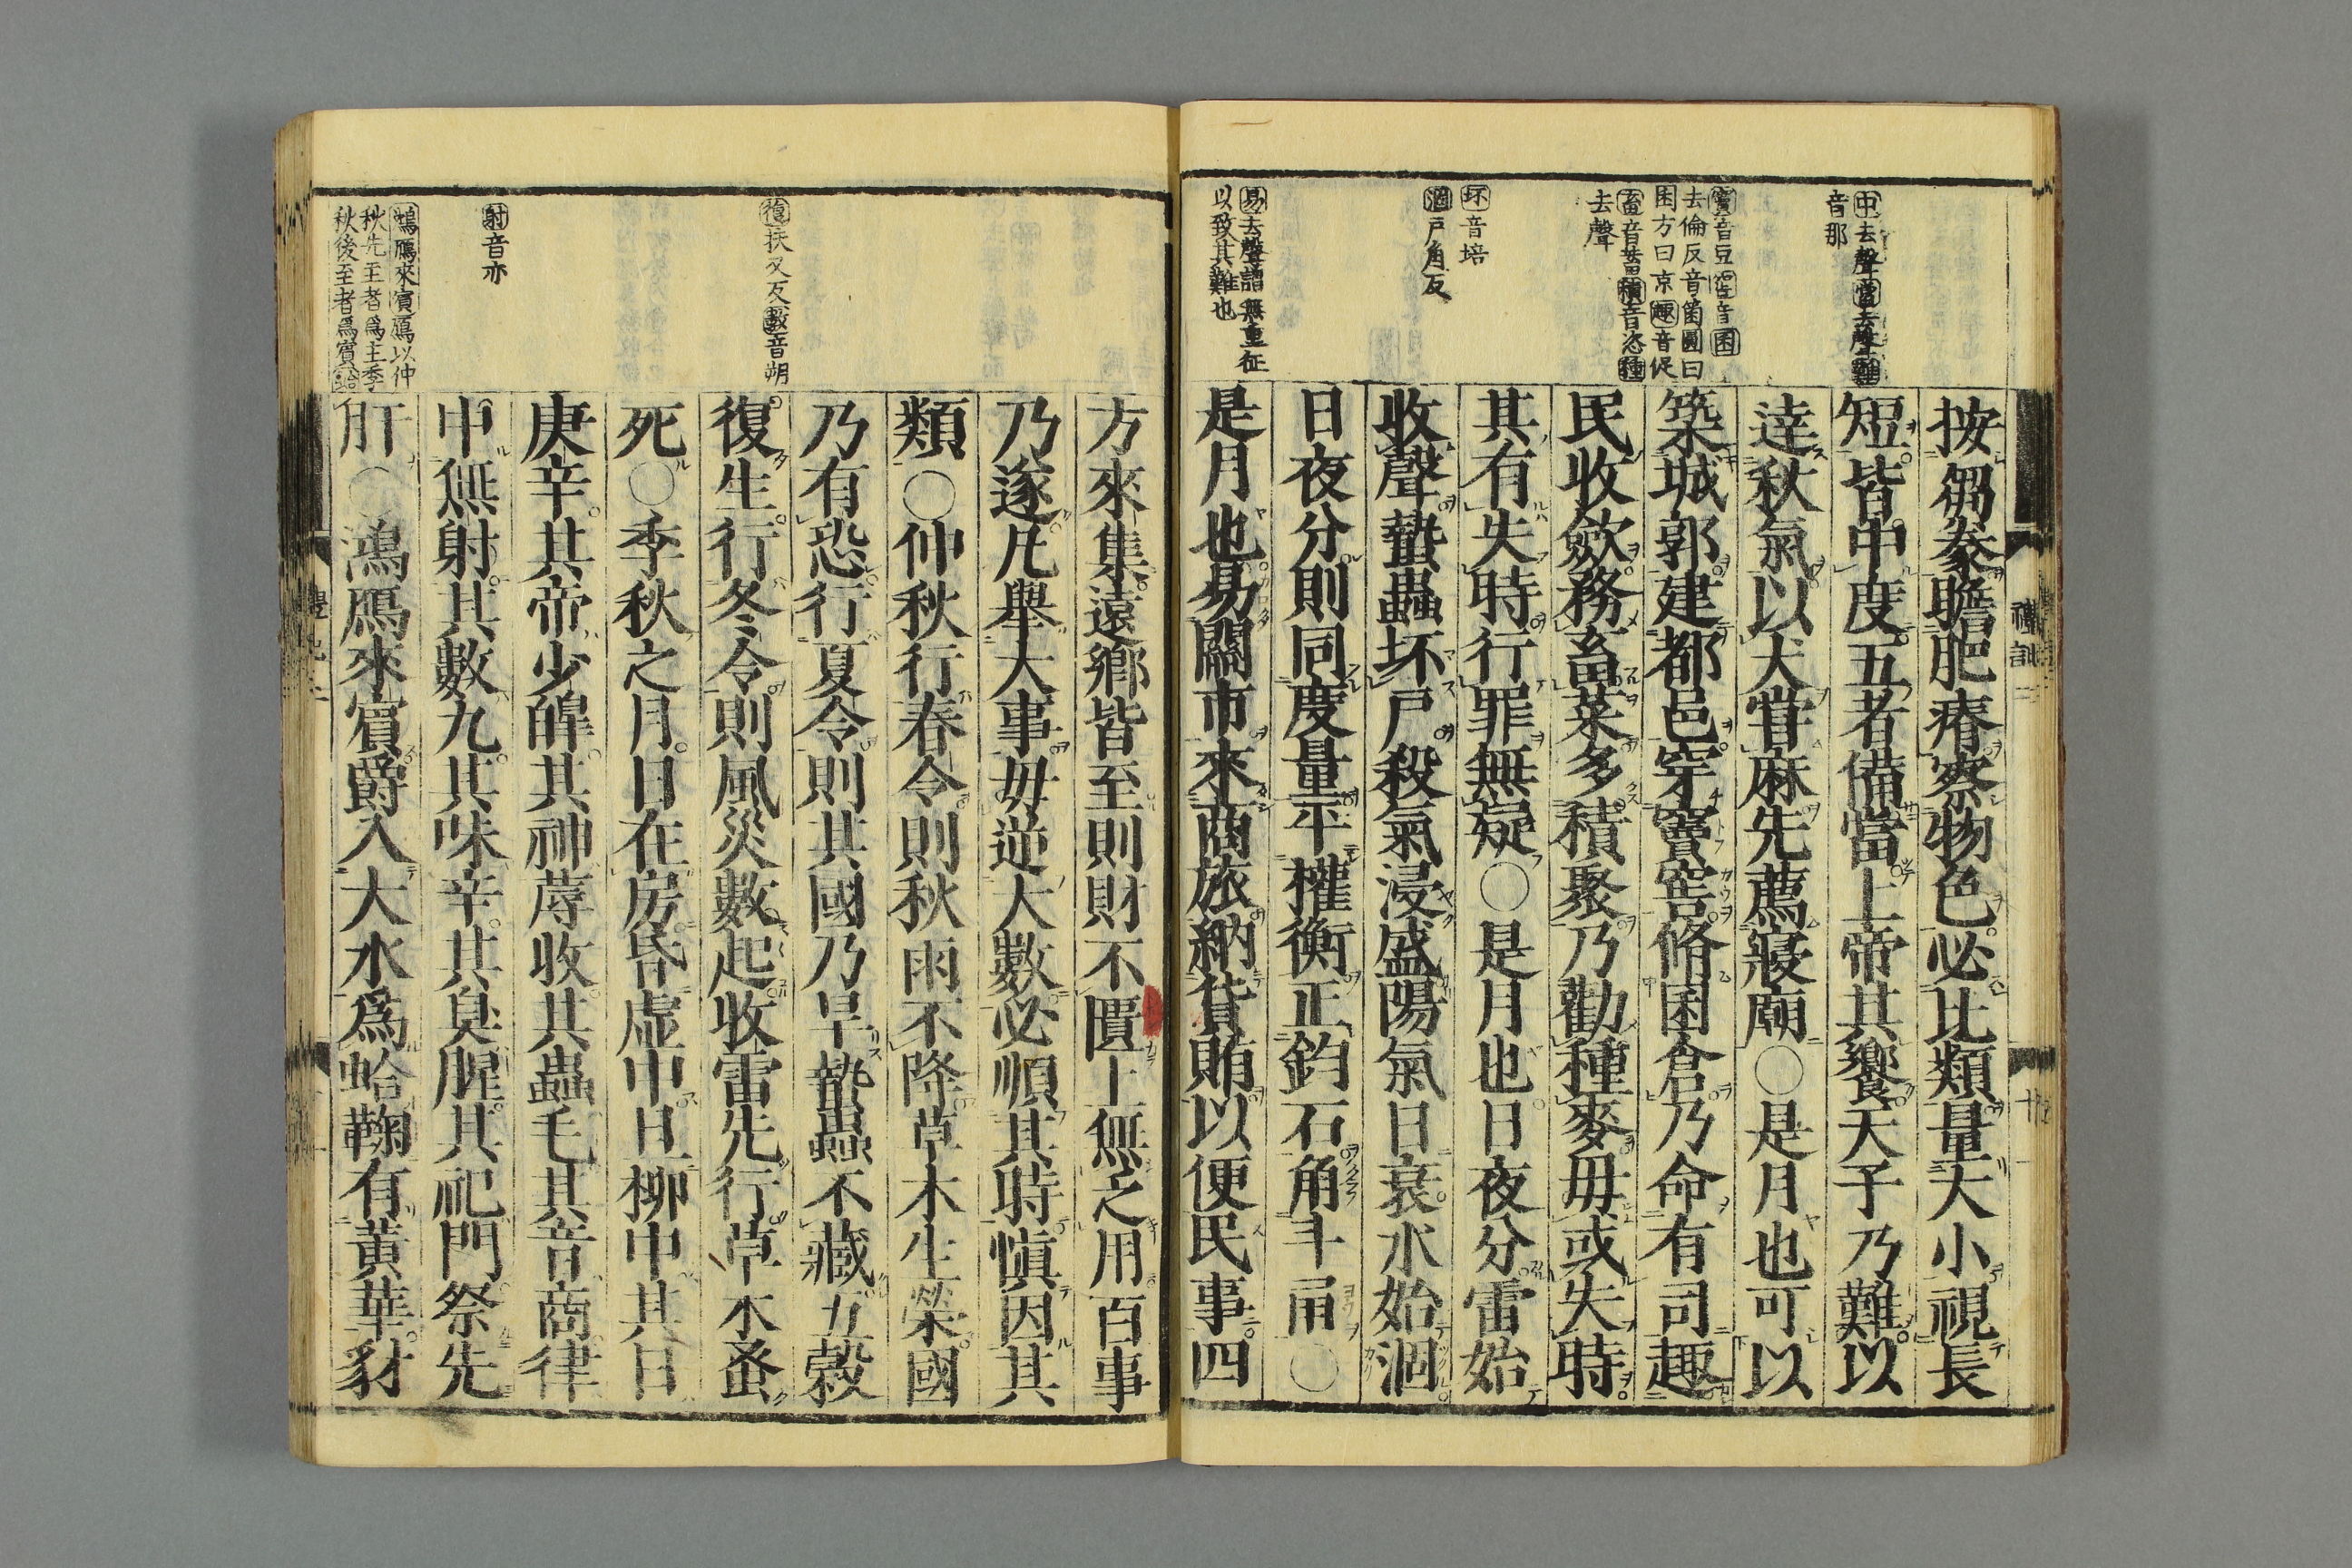 按芻豢瞻肥瘠察物色必比類量大小視長
短皆中度五者備當上帝其饗天子乃難以
達秋氣以犬甞麻先薦寢廟〇是月也可以
築城郭建都邑穿竇窖脩囷倉乃命有司趣
民收斂務畜菜多積聚乃勸種麥毋或失時
其有失時行罪無疑〇是月也日夜分雷始
收聲蟄蟲坏戸殺氣浸盛陽氣日衰水始涸
日夜分則同度量平權衡正鈞石角斗甬〇
是月也易關市來商旅納貨賄以便民事四
中去聲當去聲難
音那
竇音豆窖音
去倫反音箘圓曰
囷方曰京趣音促
畜音蓄積音恣種
去聲
坏音培
涸戸角反
易去聲謂無重征
以致其難也
方來集遠鄉皆至則財不匱上無乏用百事
乃遂凡舉大事毋逆大數必順其時愼因其
類〇仲秋行春令則秋雨不降草木生榮國
乃有恐行夏令則其國乃旱蟄蟲不藏五穀
復生行冬令則風災數起收雷先行草木蚤
死〇季秋之月日在房昏虛中旦柳中其日
庚辛其帝少皥其神蓐收其蟲毛其音商律
中無射其數九其味辛其臭腥其祀門祭先
肝〇鴻鴈來賓爵入大水爲蛤鞠有黃華豺
復扶又反數音朔
射音亦
鴻鴈來賓鴈以仲
秋先至者爲主季
秋後至者爲賓蛤